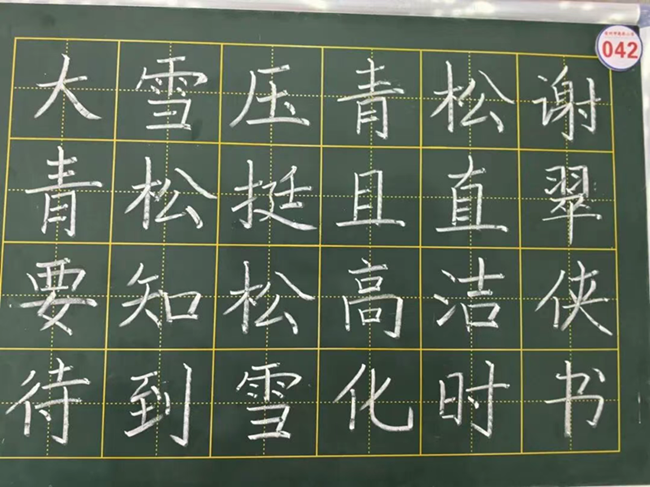 大雪压青松谢
青松挺且直翠
要知松高洁侠
待到雪化时书
042